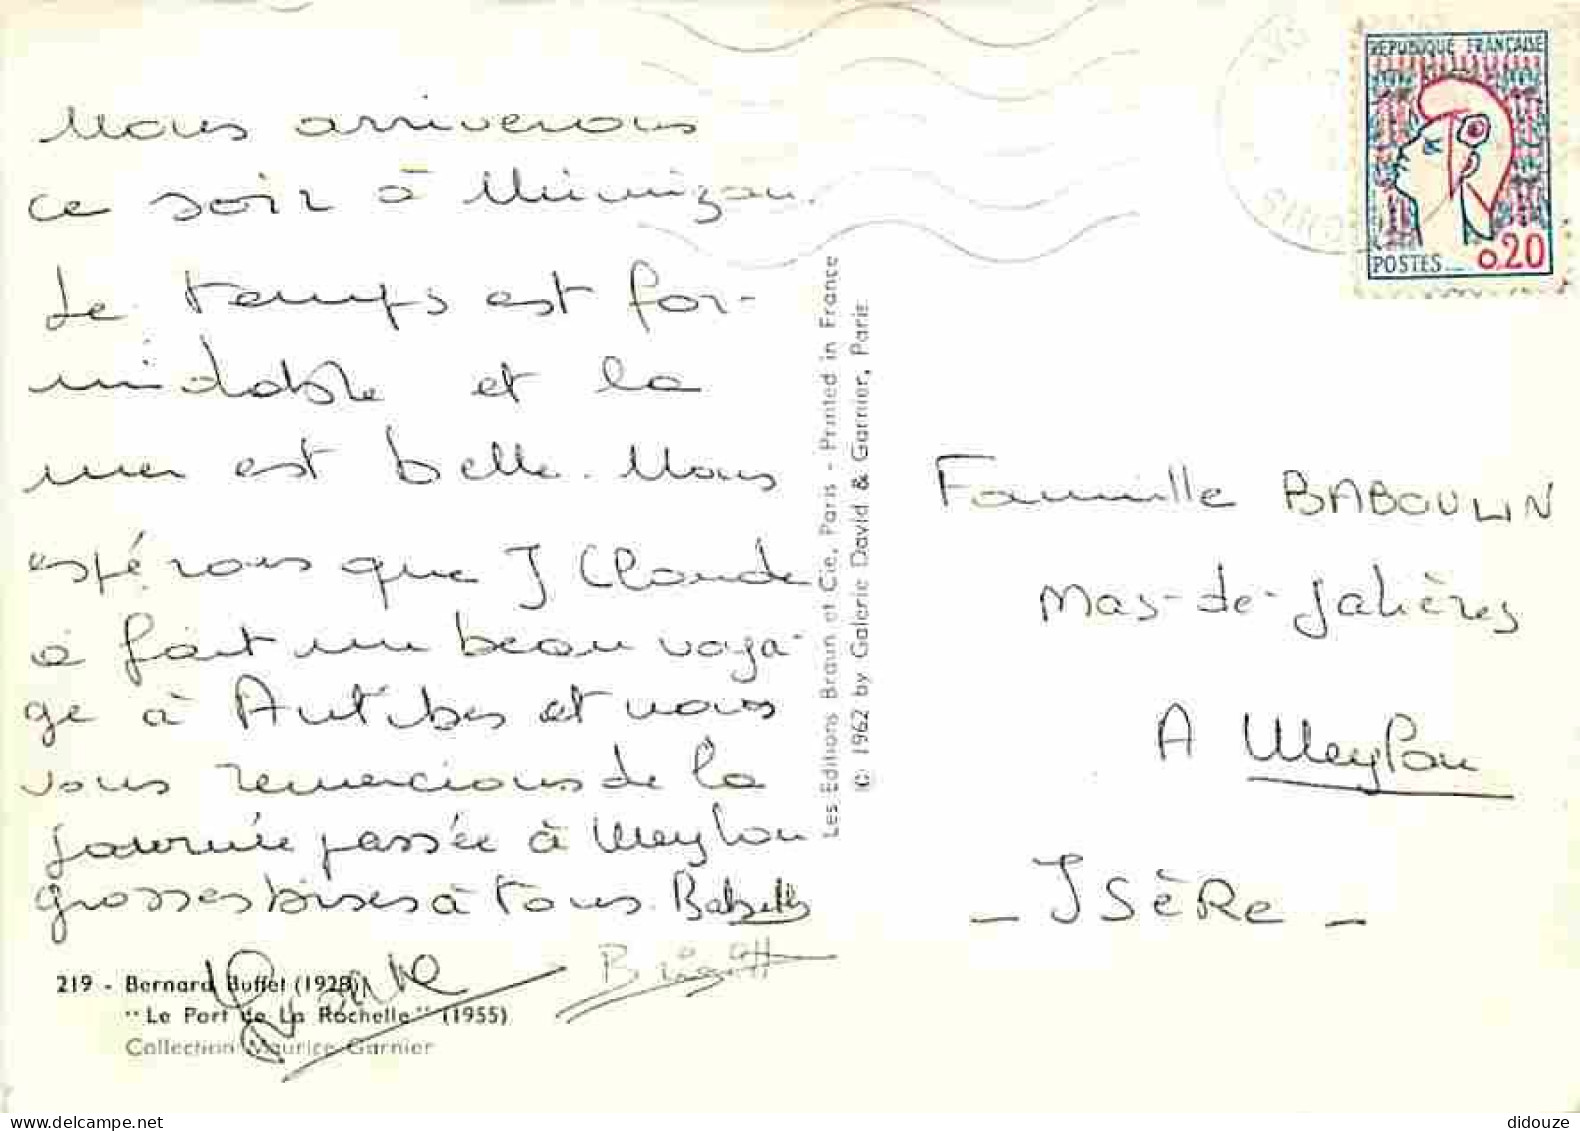 Nous arriverons
ce soir à Mimizan.
Le temps est for-
midable et la
mer est belle. Nous
espérons que J Claude
a fait un beau voya-
ge à Antibes et nous
vous remercions de la
journée passée à Meylan
grosses bises à tous.
Brigitt
219 - Bernard Buffet (1928)
"Le Port de La Rochelle" (1955)
Collection Maurice Garnier
Les Editions Braun et Cie, Paris - Printed in France
© 1962 by Galerie David & Garnier, Paris
REPUBLIQUE FRANÇAISE
POSTES
0,20
Famille BABOULIN
Mas-de-Jalières
A Meylan
- Isère -
didouze